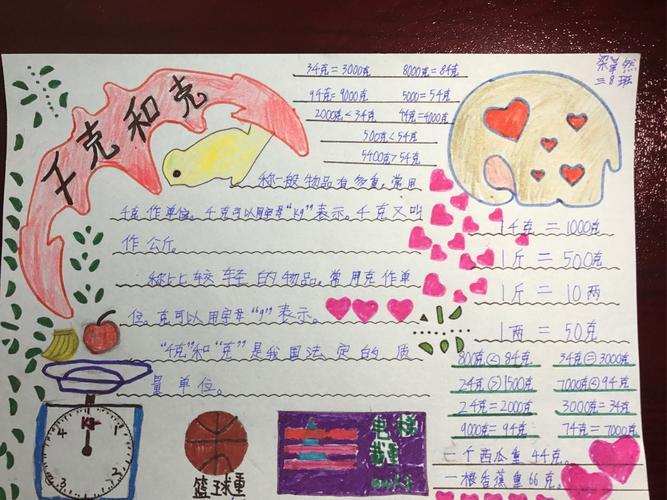 千克和克
3千克=3000克 8000克=8千克
9千克=9000克 5000=5千克
2000克<3千克 4千克=4000克
500克<5千克
5400克>5千克
梁
三8班
称一般物品有多重,常用
千克作单位。千克可以用字母“kg”表示。千克又叫
作公斤。
称比较轻的物品,常用克作单
位。克可以用字母“g”表示。
“千克”和“克”是我国法定的质
量单位。
1千克=1000克
1斤=500克
1斤=10两
1两=50克
800克<8千克 3千克=3000克
2千克>1500克 7000克<9千克
2千克=2000克 3000克=3千克
9000克=9千克 7千克=7000克
一个西瓜重4千克。
一根香蕉重66克。
kg
1
2
3
4
篮球重
电梯
载重